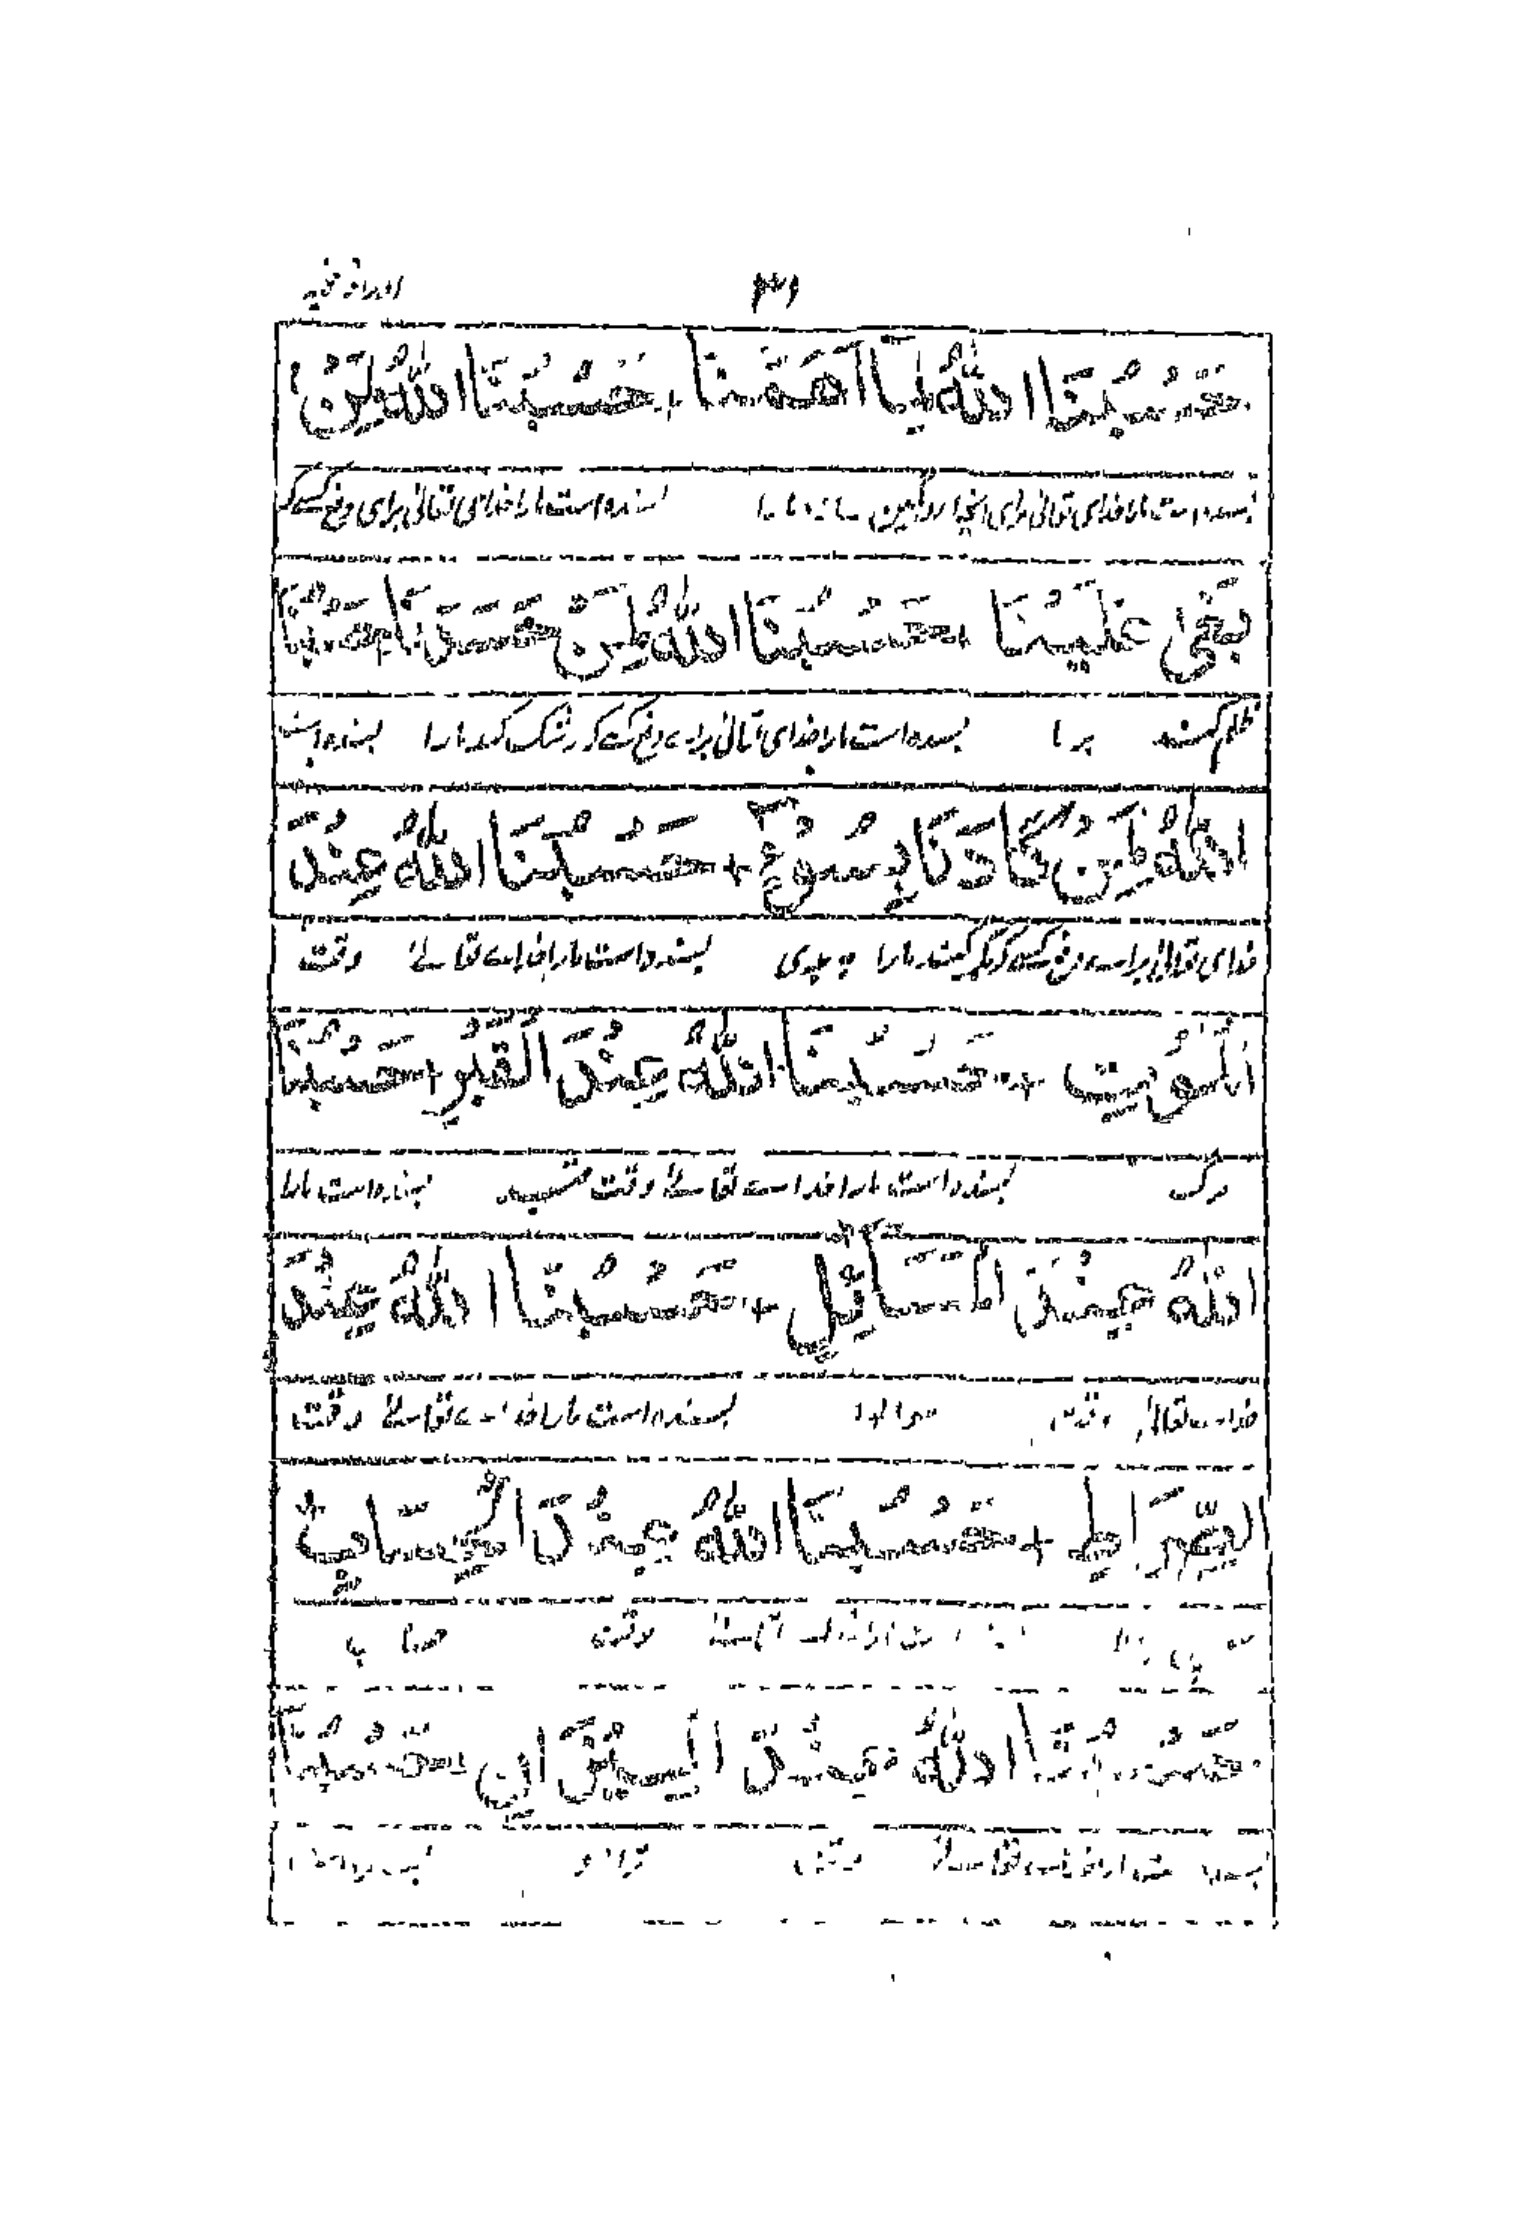 ۳۶ اوراد فتحیه
حَسْبُنَا اللهُ لِمَا أَهَمَّنَا + حَسْبُنَا اللهُ لِمَنْ
بسنده است مارا خدای تعالی برای آنچه اندوهگین مارا بسنده است مارا خدای تعالی برای دفع کسے کہ
بَغٰی عَلَيْنَا + حَسْبُنَا اللهُ لِمَنْ حَسَدَنَا حَسْبُنَا
ظلم کند بر ما بسنده است مارا خدای تعالی براے دفع کسے کہ رشک کند مارا بسنده است
اللهُ لِمَنْ كَادَنَا بِسُوْءٍ + حَسْبُنَا اللهُ عِنْدَ
خدای تعالی براے دفع کسے کہ مکر کند مارا بہ بدی بسنده است مارا خداے تعالےٰ وقت
الْمَوْتِ + حَسْبُنَا اللهُ عِنْدَ الْقَبْرِ + حَسْبُنَا
مرگ بسنده است مارا خداے تعالےٰ وقت بسنده است مارا
اللهُ عِنْدَ الْمَسَائِلِ + حَسْبُنَا اللهُ عِنْدَ
خداے تعالیٰ وقت سوالها بسنده است مارا خداے تعالےٰ وقت
الصِّرَاطِ + حَسْبُنَا اللهُ عِنْدَ الْحِسَابِ
وقت حساب
حَسْبُنَا اللهُ عِنْدَ الْمِيْزَانِ حَسْبُنَا
بسنده است مارا خداے تعالےٰ وقت ترازو بسنده است